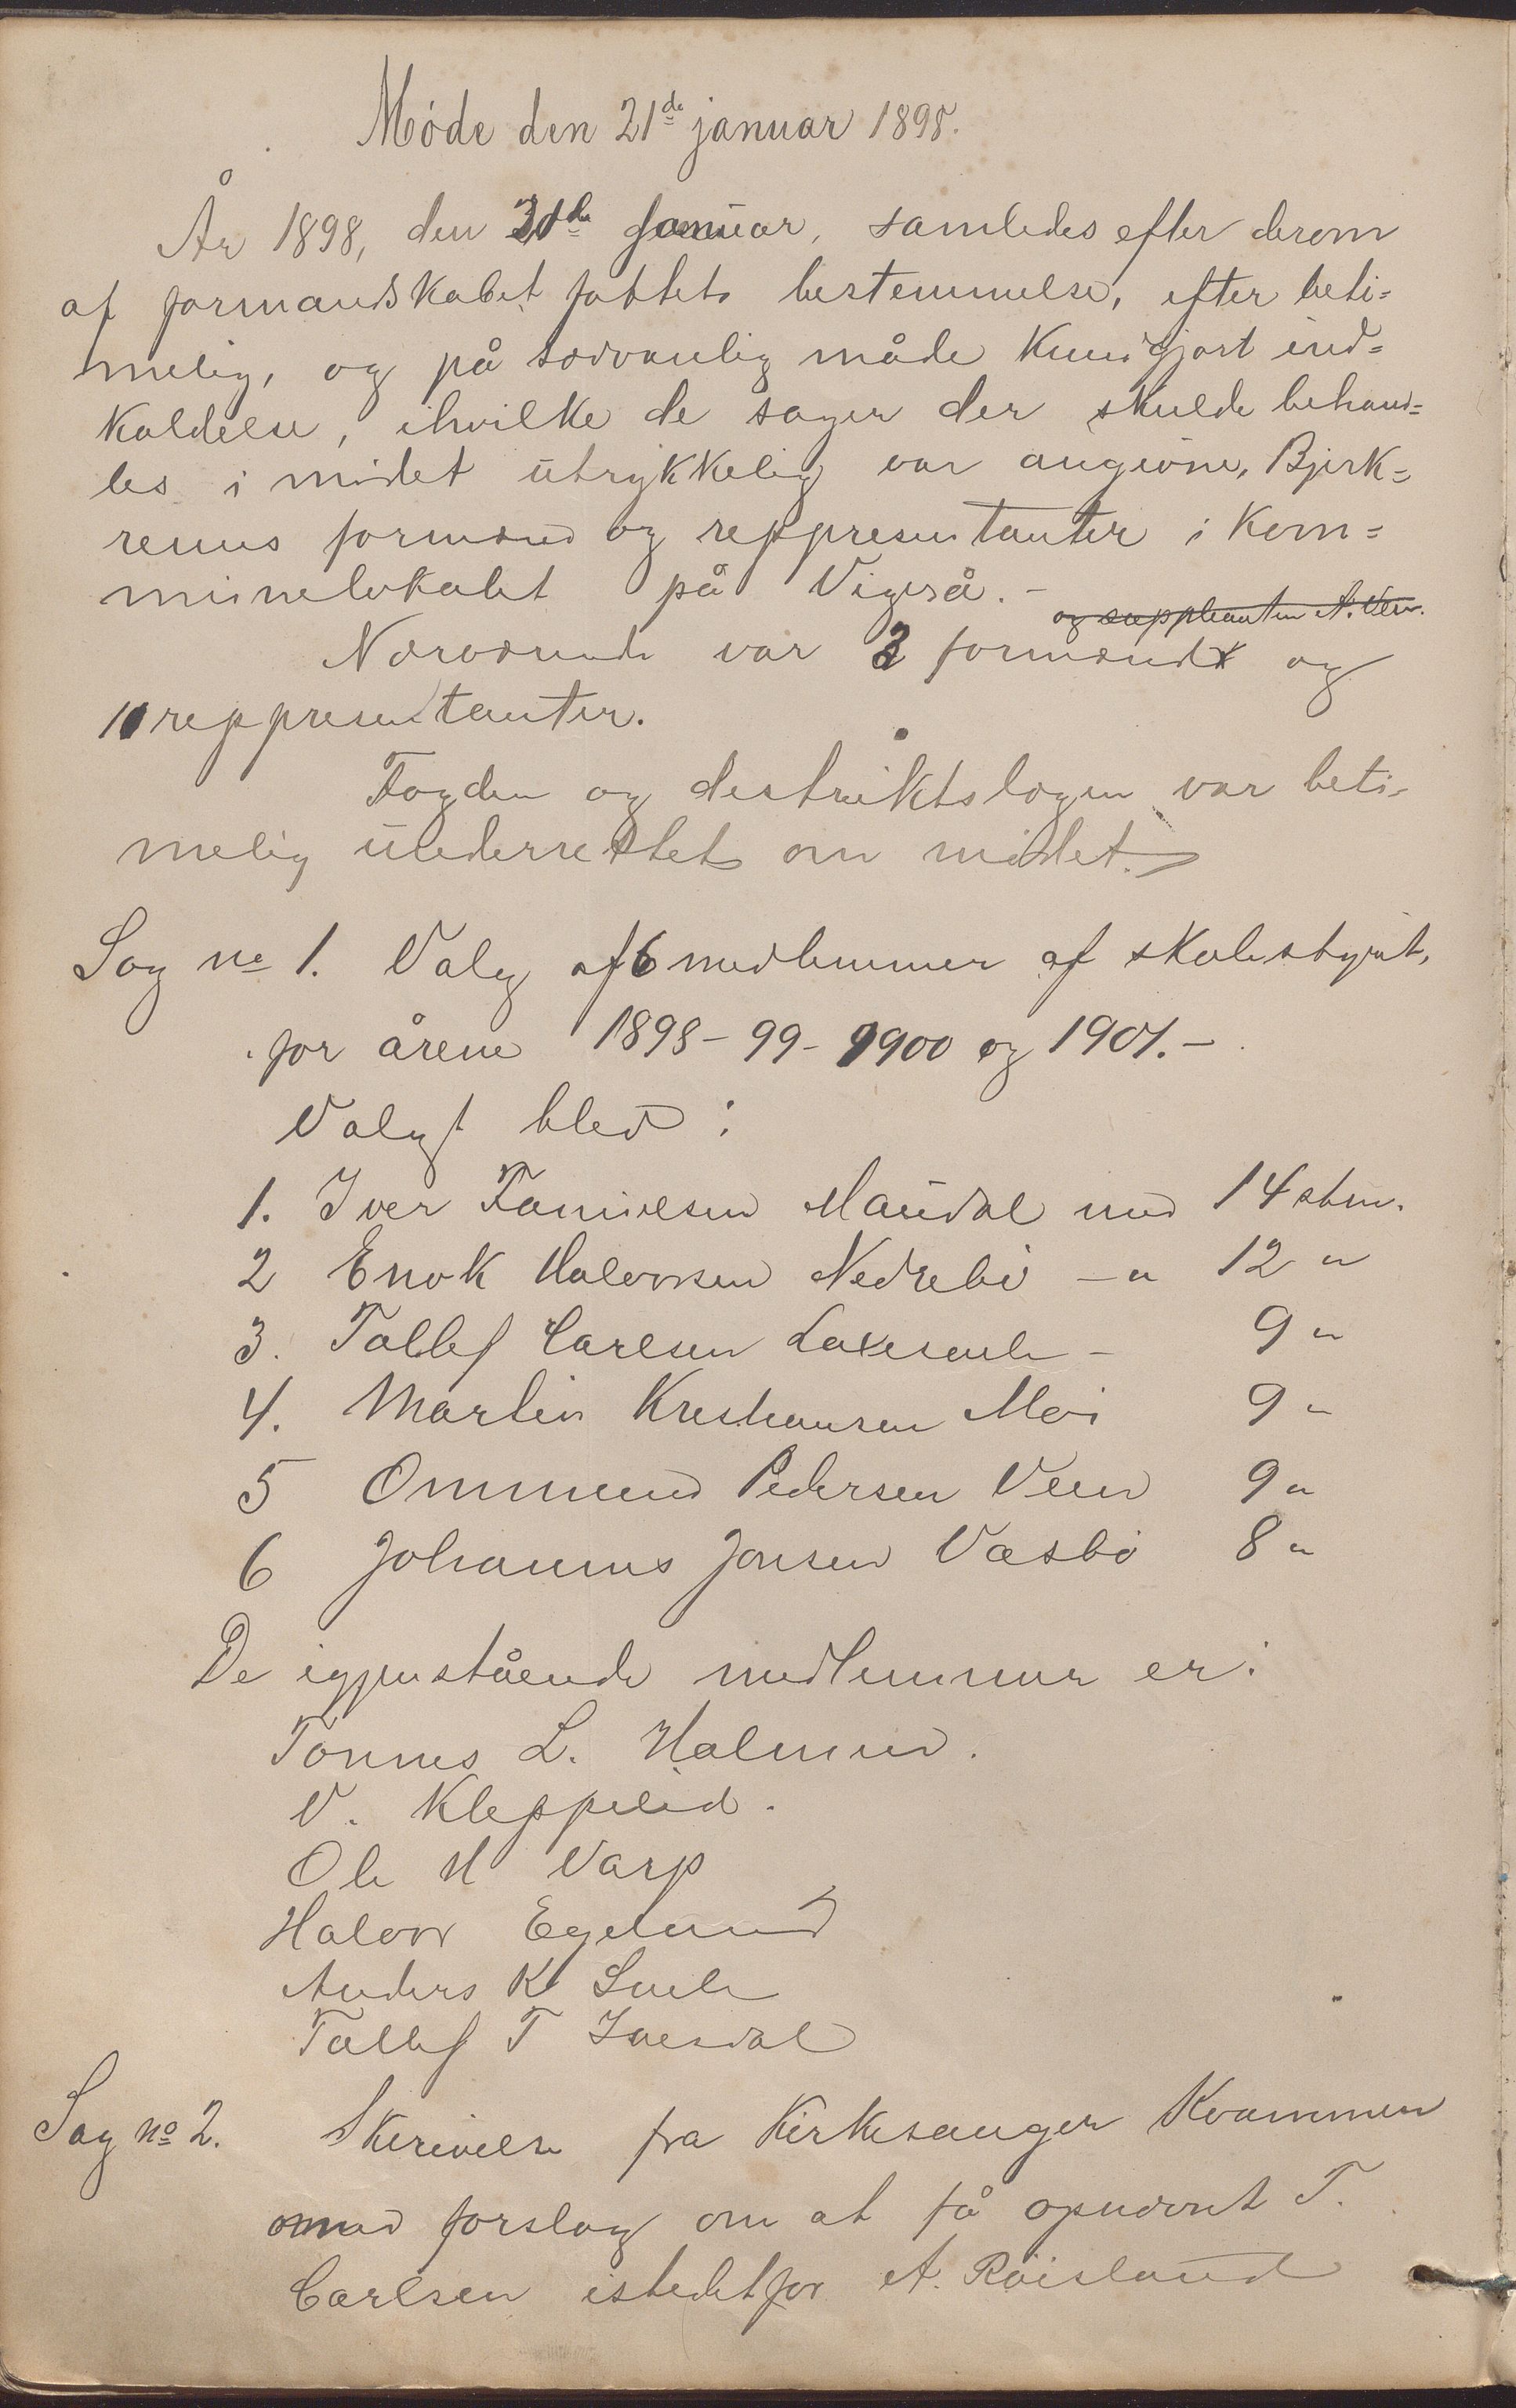 Møde den 21de januar 1898.
År 1898, den 21de Januar, samledes efter derom
af formandskabet fattet bestemmelse, efter beti=
melig, og på sædvanlig måde kundgjort ind=
kaldelse, ihvilke de sager der skulde behand=
les i mødet utrykkelig var angivne, Bjerk=
reims formænd og reppresentanter i kom=
munelokalet på Vigeså.-
og suppleanten A. Veen.
Nærværende var 3 formænd og
10 reppresentanter.
Fogden og destriktslægen var beti-
melig underrettet om mødet.
Sag no 1. Valg af 6 medlemmer af skolestyret,
for årene 1898-99-1900 og 1901.-
Valgt blev:
1. Iver Tønnesen Maudal med 14 stm.
2 Enok Halvorsen Nedrebø -" 12 "
3. Tollef Carlsen Laxesvele - 9 "
4. Martin Kresthansen Moi 9 "
5 Ommund Pedersen Veen 9 "
6 Johannes Jonsen Væsbø 8 "
De igjenstående medlemmer er:
Tønnes L. Holmen.
V. Kleppelid.
Ole H Varp
Halvor Egelund
Anders K Svele
Tollef T Ivesdal
Sag no 2. Skrivelse fra Kirkesanger Kvammen
med forslag om at få opnævnt T.
Carlsen istedetfor A. Røisland